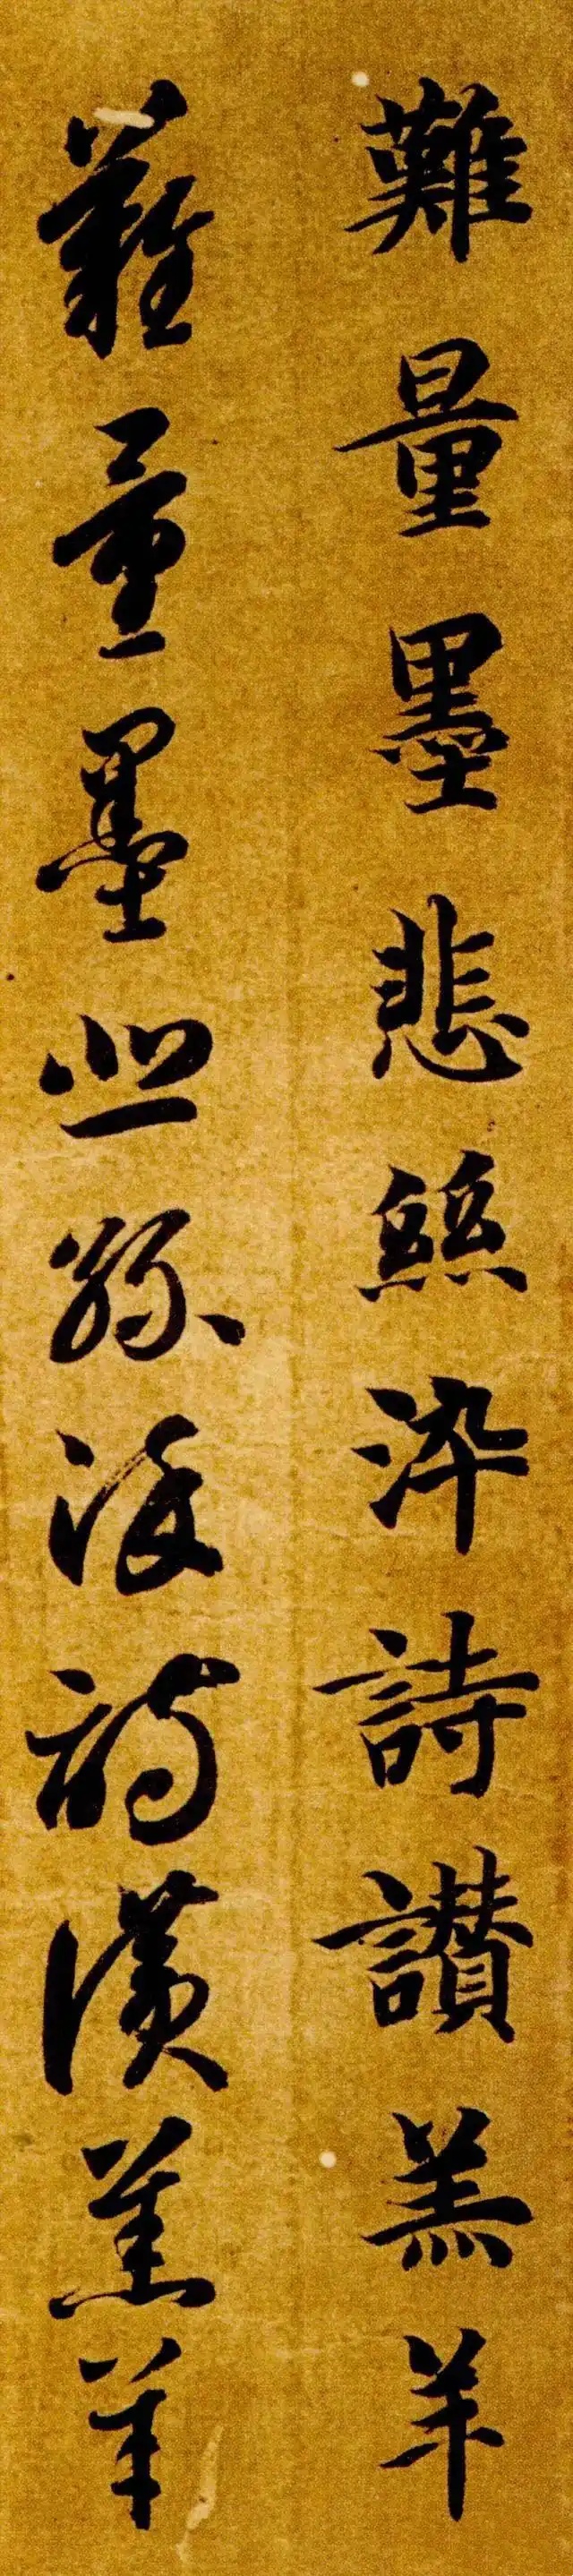 難量墨悲絲染詩讃羔羊
難量墨悲絲染詩讃羔羊